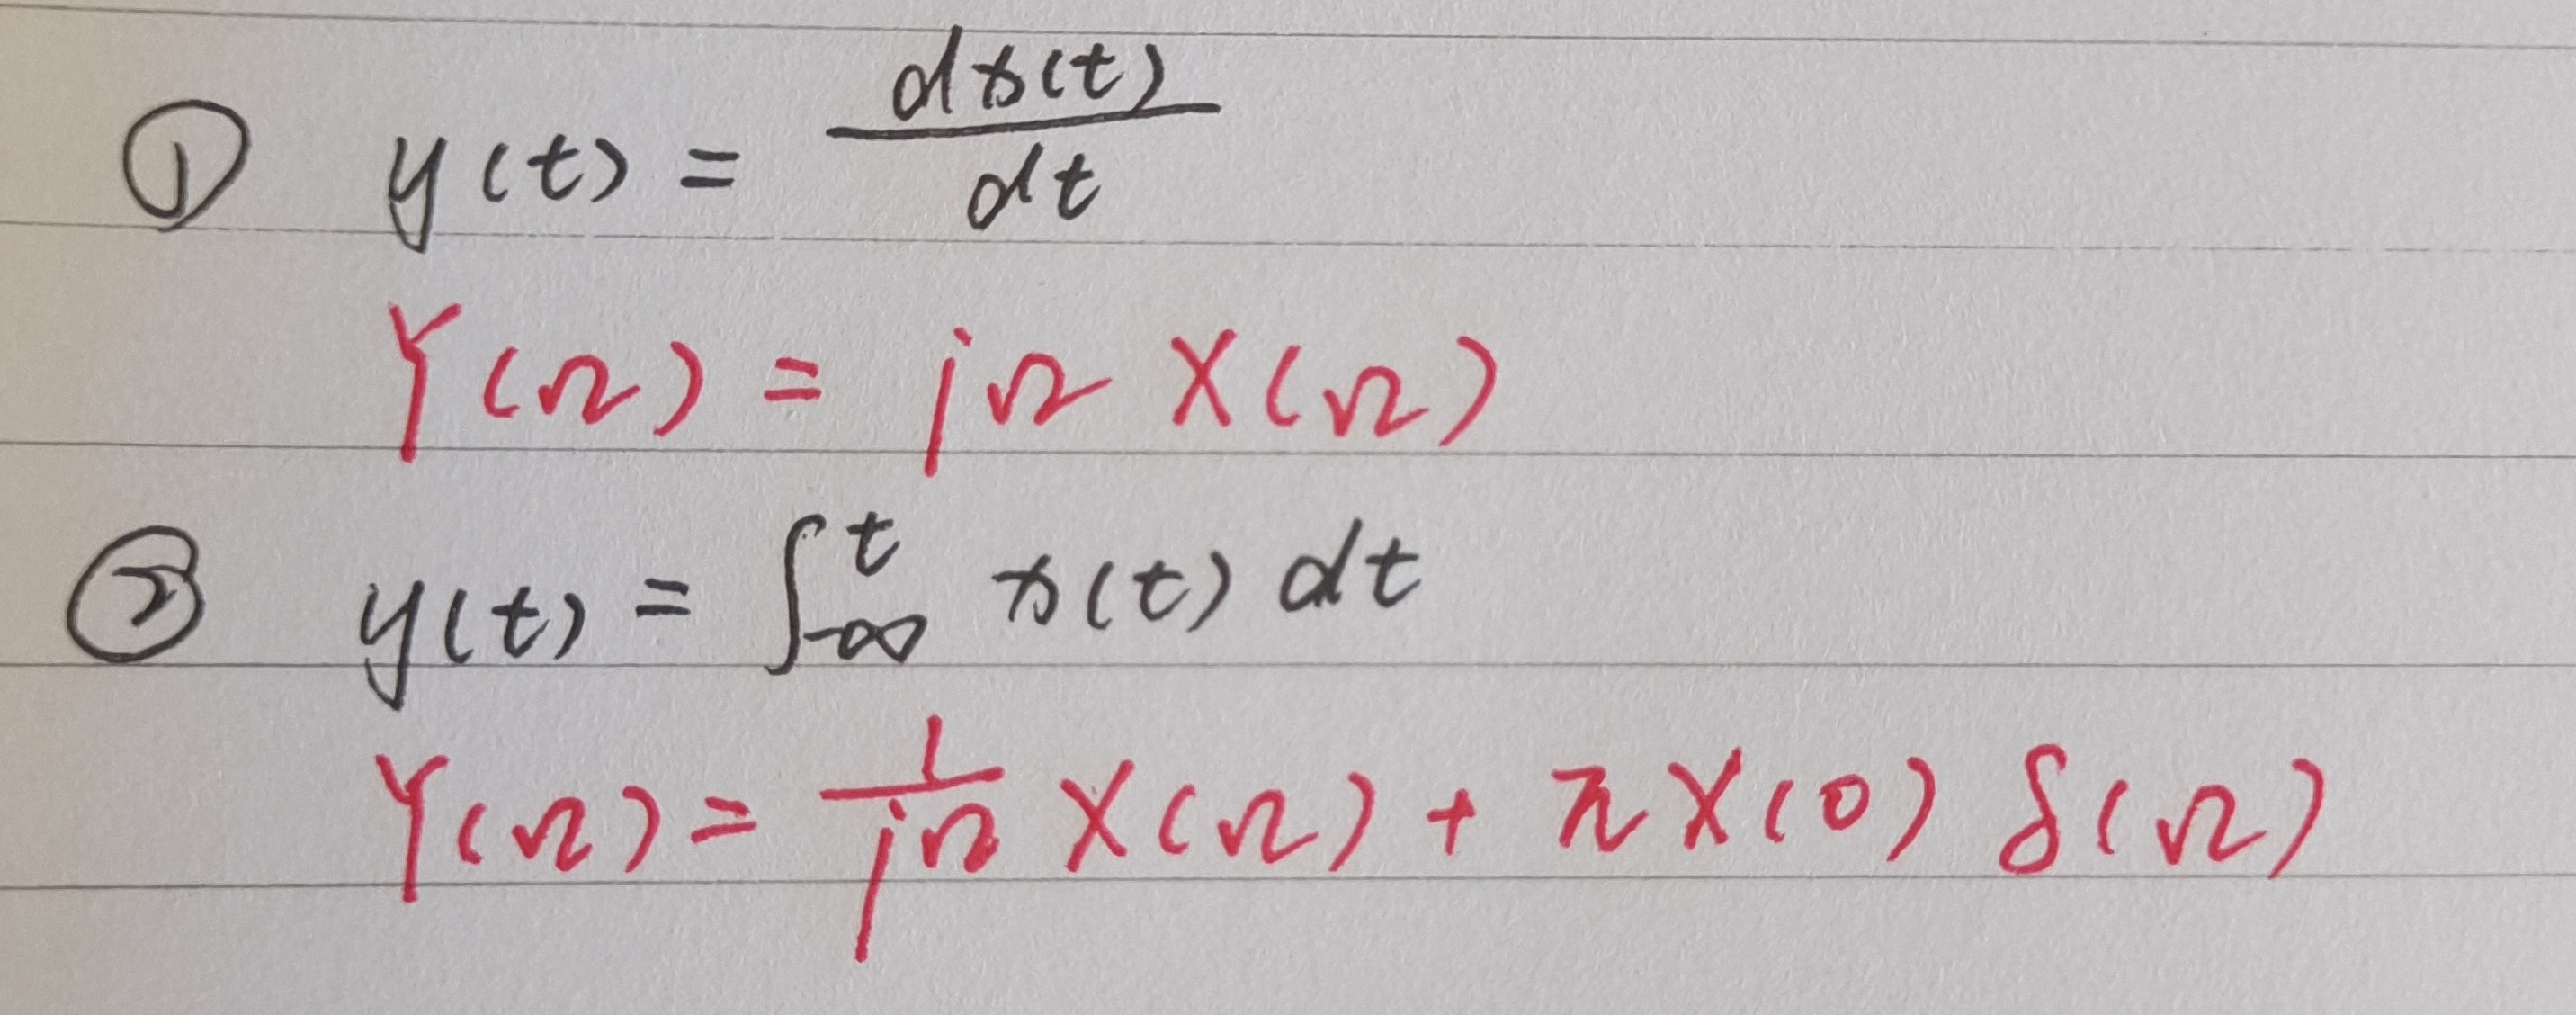 ① y(t) = dx(t)/dt
Y(Ω) = jΩ X(Ω)
② y(t) = ∫_{-∞}^{t} x(t) dt
Y(Ω) = 1/jΩ X(Ω) + π X(0) δ(Ω)